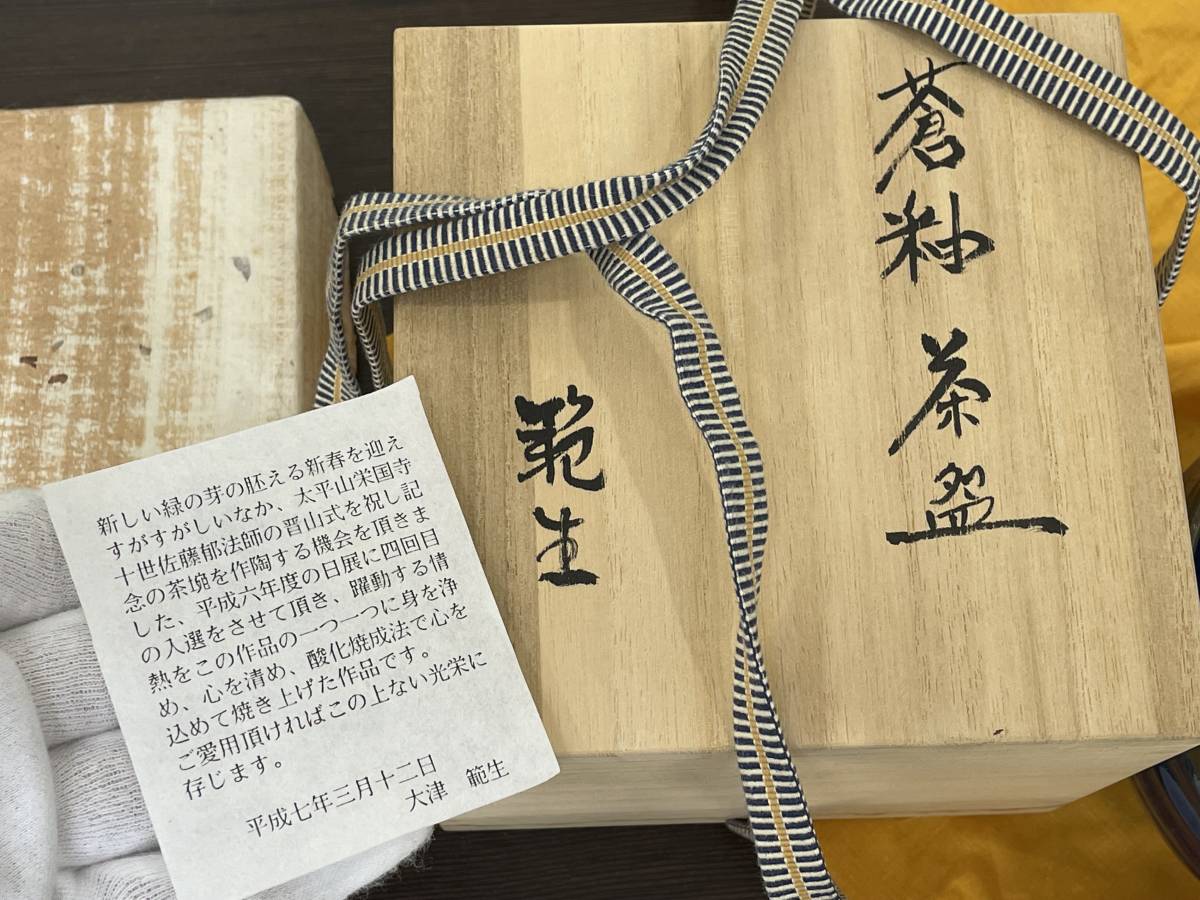 蒼釉 茶盌
範生
新しい緑の芽の胚える新春を迎え
すがすがしいなか、太平山栄国寺
十世佐藤郁法師の晋山式を祝し記
念の茶塊を作陶する機会を頂きま
した、平成六年度の日展に四回目
の入選をさせて頂き、躍動する情
熱をこの作品の一つ一つに身を浄
め、心を清め、酸化焼成法で心を
込めて焼き上げた作品です。
ご愛用頂ければこの上ない光栄に
存じます。
平成七年三月十二日
大津 範生